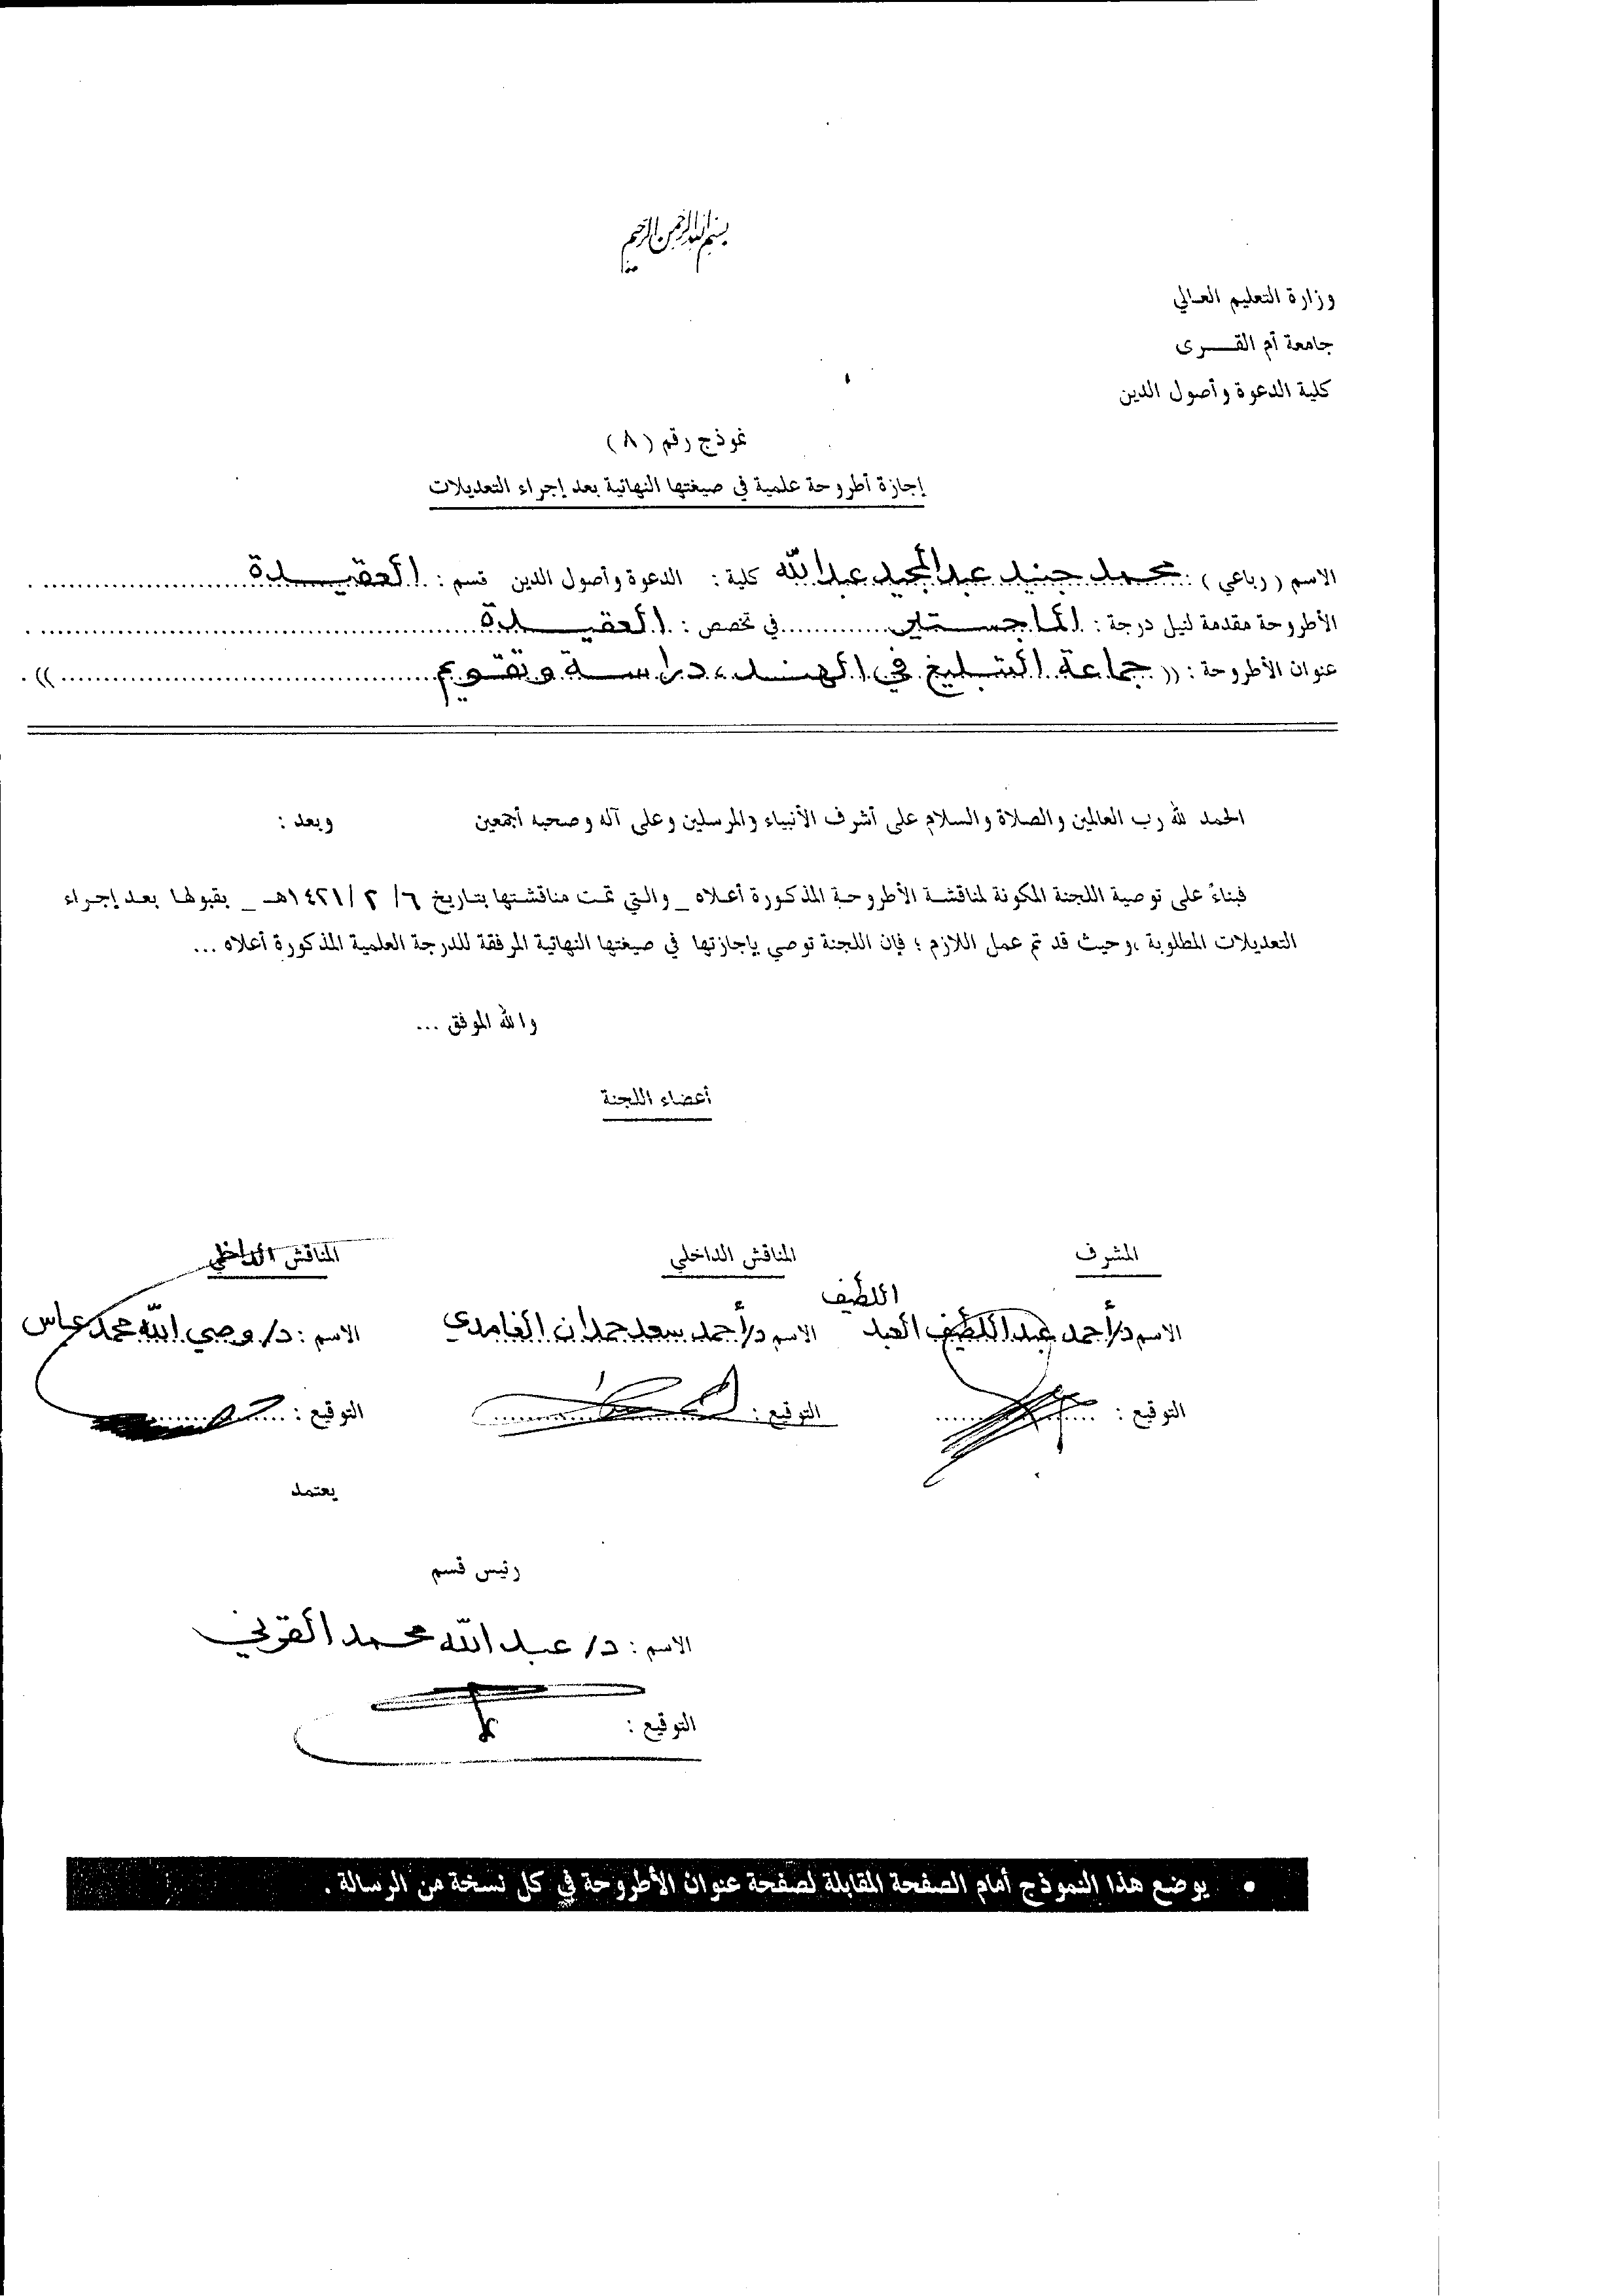 بسم الله الرحمن الرحيم
وزارة التعليم العالي
جامعة أم القــــرى
كلية الدعوة وأصول الدين
نموذج رقم (٨)
إجازة أطروحة علمية في صيغتها النهائية بعد إجراء التعديلات
الاسم (رباعي) : محمد جنيد عبدالمجيد عبدالله كلية : الدعوة وأصول الدين قسم : العقيدة
الأطروحة مقدمة لنيل درجة : الماجستير في تخصص : العقيدة
عنوان الأطروحة : (( جماعة التبليغ في الهند ، دراسة وتقويم )) .
الحمد لله رب العالمين والصلاة والسلام على أشرف الأنبياء والمرسلين وعلى آله وصحبه أجمعين وبعد :
فبناءً على توصية اللجنة المكونة لمناقشة الأطروحة المذكورة أعلاه _ والتي تمت مناقشتها بتاريخ ٦ / ٢ / ١٤٢١هـ _ بقبولها بعد إجراء
التعديلات المطلوبة ،وحيث قد تم عمل اللازم ؛ فإن اللجنة توصي بإجازتها في صيغتها النهائية المرفقة للدرجة العلمية المذكورة أعلاه ...
والله الموفق ...
أعضاء اللجنة
المشرف المناقش الداخلي المناقش الداخلي
اللطيف
الاسم د/أحمد عبداللطيف العبد الاسم د/أحمد سعد حمدان الغامدي الاسم : د/ وصي الله محمد عباس
التوقيع : التوقيع : التوقيع :
يعتمد
رئيس قسم
الاسم : د/ عبدالله محمد القرني
التوقيع :
• يوضع هذا النموذج أمام الصفحة المقابلة لصفحة عنوان الأطروحة في كل نسخة من الرسالة .